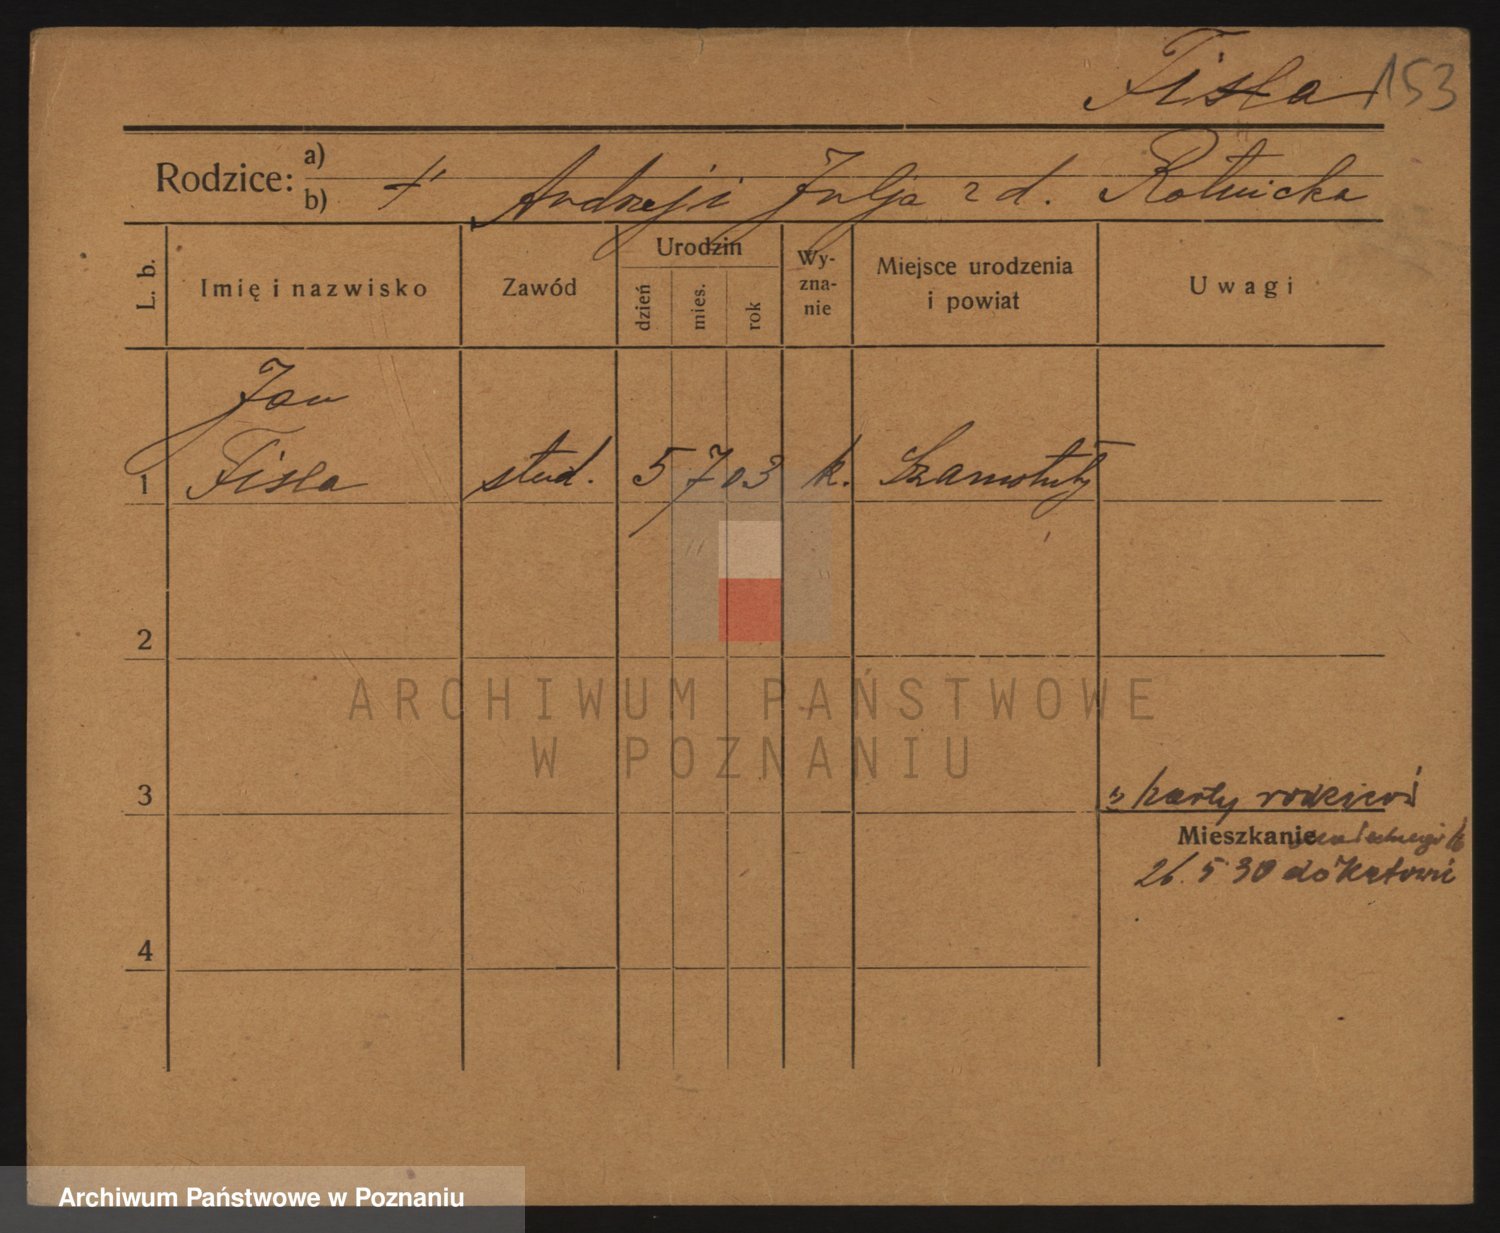 Fisła 153
Rodzice: a)
b) † Andrzej i Julja z d. Rotnicka
L. b. Imię i nazwisko Zawód Urodzin dzień mies. rok Wy-zna-nie Miejsce urodzenia i powiat Uwagi
Jan
1 Fisła stud. 5 7 03 k. Szamotuły
2
ARCHIWUM PAŃSTWOWE
W POZNANIU
3 z karty rodziców
Mieszkanie
26. 5 30 do Katowic
4
Archiwum Państwowe w Poznaniu